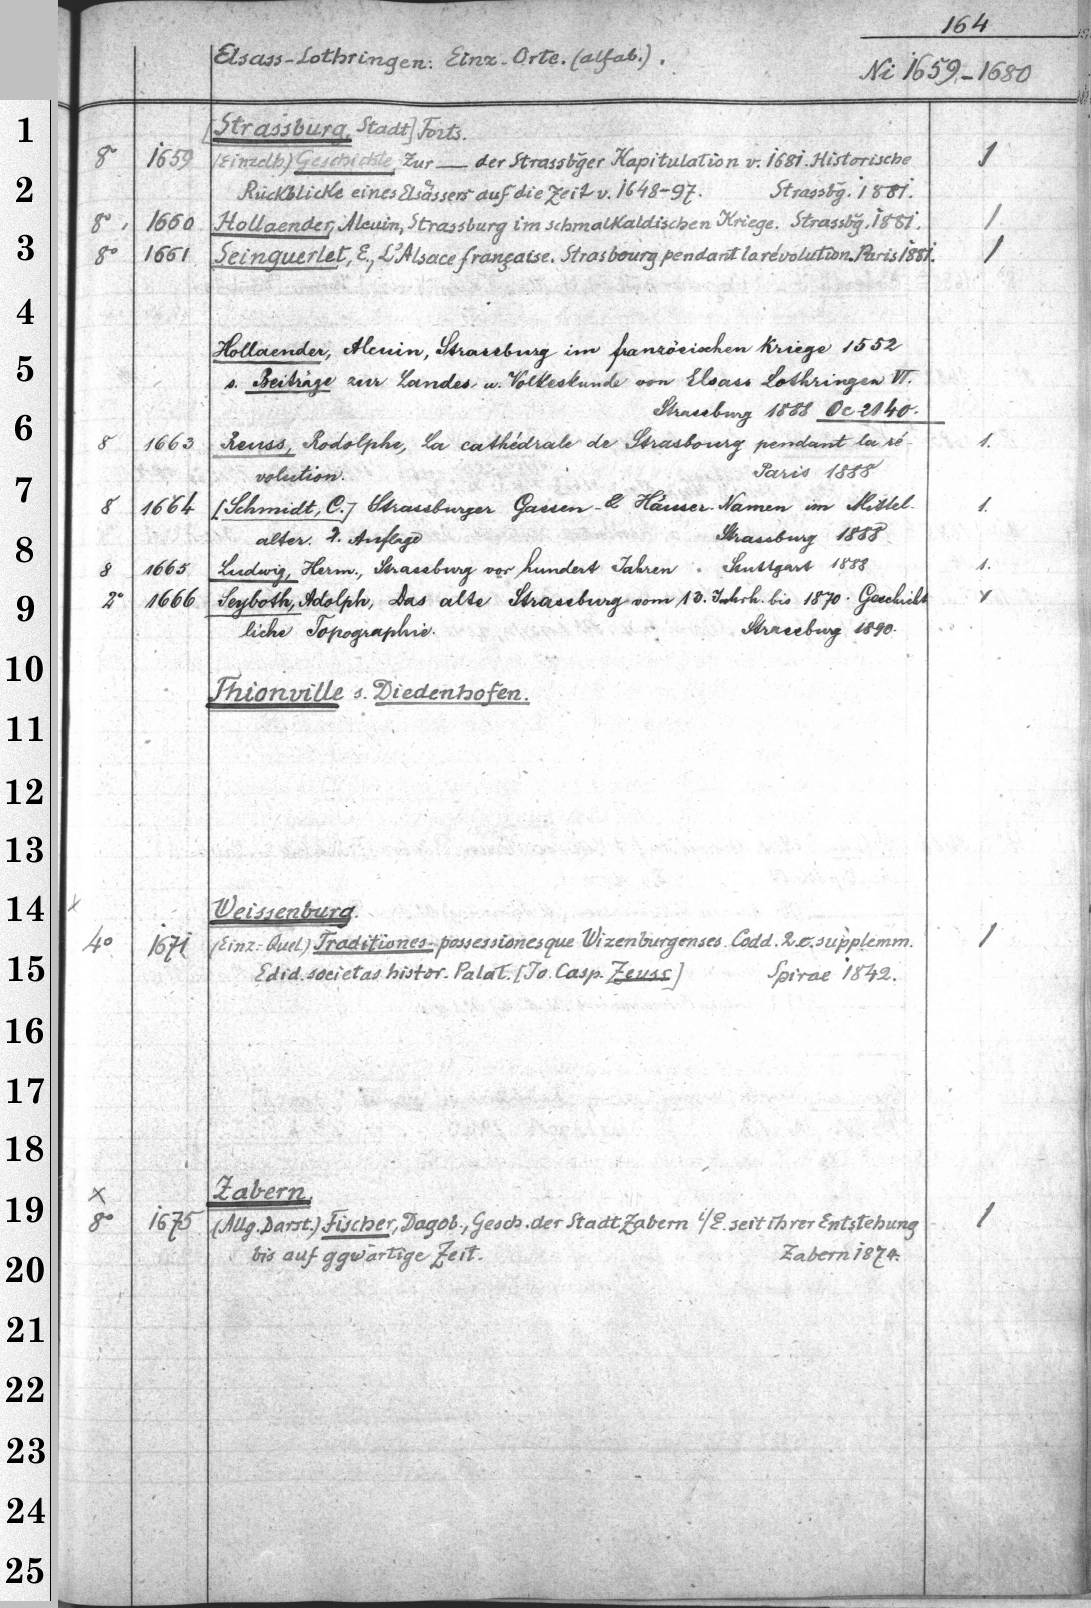 164
Elsass-Lothringen: Einz-Orte. (alfab.).
Ni 1659-1680
1
[Strassburg, Stadt] Forts.
8° 1659 (Einzelh.) Geschichte, Zur — der Strassbger Kapitulation v. 1681. Historische 1
2
Rückblicke eines Elsässers auf die Zeit v. 1648-97. Strassbg. 1881.
8° 1660 Hollaender, Alcuin, Strassburg im schmalkaldischen Kriege. Strassbg. 1881. 1
3
8° 1661 Seinguerlet, E., L'Alsace française. Strasbourg pendant la révolution. Paris 1881. 1
4
Hollaender, Alcuin, Strassburg im französischen Kriege 1552
5
s. Beiträge zur Landes- u. Volkeskunde von Elsass Lothringen VI.
Strassburg 1888 Oc 2140.
6
8 1663 Reuss, Rodolphe, La cathédrale de Strasbourg pendant la ré- 1.
volution. Paris 1888
7
8 1664 [Schmidt, C.] Strassburger Gassen- & Häuser-Namen im Mittel- 1.
alter. 2. Auflage Strassburg 1888
8
8 1665 Ludwig, Herm., Strassburg vor hundert Jahren. Stuttgart 1888 1.
9
2° 1666 Seyboth, Adolph, Das alte Strassburg vom 13. Jahrh. bis 1870. Geschicht 1
liche Topographie. Strassburg 1890.
10
Thionville s. Diedenhofen.
11
12
13
14
x Weissenburg.
4° 1671 (Einz.-Quel.) Traditiones possessionesque Wizenburgenses. Codd. 2 c. supplemm. 1
15
Edid. societas histor. Palat. [Jo. Casp. Zeuss] Spirae 1842.
16
17
18
x Zabern.
19
8° 1675 (Allg. Darst.) Fischer, Dagob., Gesch. der Stadt Zabern i/E. seit ihrer Entstehung 1
bis auf ggwärtige Zeit. Zabern 1874.
20
21
22
23
24
25